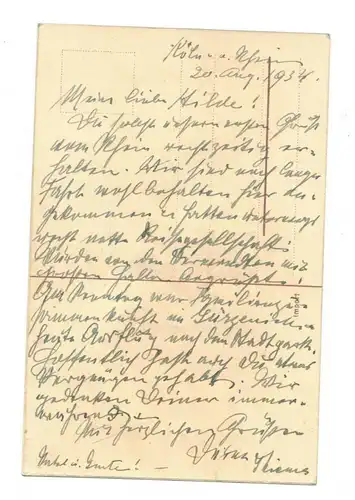 Köln a. Rhein
20. Aug. 1934.
Meine liebe Hilde!
Du sollst unsern ersten Gruß
vom Rhein rechtzeitig er-
halten. Wir sind nach langer
Fahrt wohlbehalten hier an-
gekommen u. hatten unterwegs
recht nette Reisegesellschaft.
Wurden von den Verwandten mit
großem Hallo begrüßt!
Am Sonntag war Familienzu-
sammenkunft im Gürzenich
heute Ausflug nach dem Stadtgarten.
Hoffentlich hast auch Du etwas
Vergnügen gehabt. Wir
gedenken Deiner immer-
während
Mit herzlichen Grüßen
Deine
Onkel u. Tante! -
Import